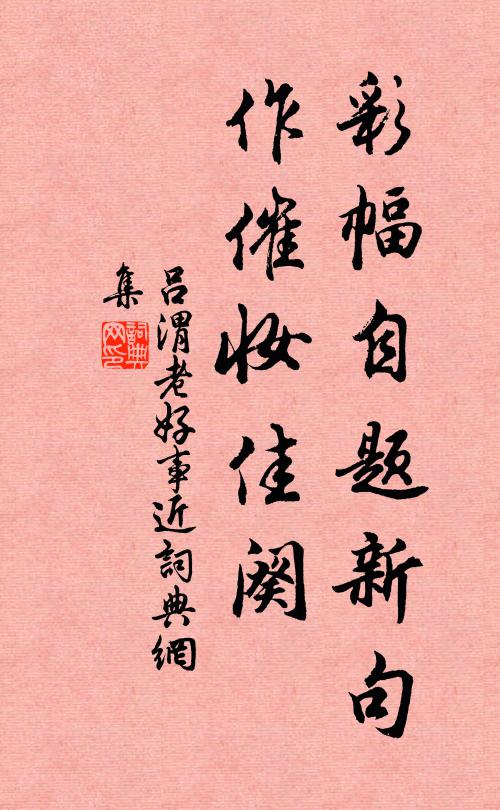 彩幅自题新句
作催妆佳阕
吕渭老好事近詞典網
集
詞典
网印